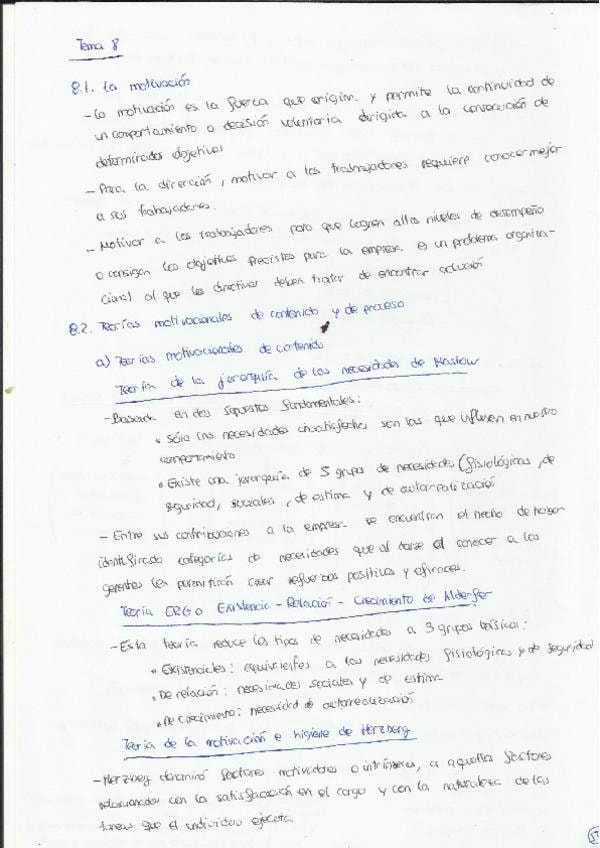 Tema 8
8.1. La motivación
- La motivación es la fuerza que origina y permite la continuidad de
un comportamiento o decisión voluntaria dirigida a la consecución de
determinados objetivos
- Para la dirección, motivar a los trabajadores requiere conocer mejor
a sus trabajadores.
- Motivar a los trabajadores para que logren altos niveles de desempeño
o consigan los objetivos previstos para la empresa es un problema organiza-
cional al que los directivos deben tratar de encontrar solución
8.2. Teorías motivacionales de contenido y de proceso
a) Teorías motivacionales de contenido
Teoría de la jerarquía de las necesidades de Maslow
- Basada en dos supuestos fundamentales:
• Sólo las necesidades insatisfechas son las que influyen en nuestro
comportamiento
• Existe una jerarquía de 5 grupos de necesidades (fisiológicas, de
seguridad, sociales, de estima y de autorrealización
- Entre sus contribuciones a la empresa se encuentran el hecho de haber
identificado categorías de necesidades que al darse a conocer a los
gerentes les permitirán crear refuerzos positivos y eficaces.
Teoría ERG o Existencia - Relación - Crecimiento de Alderfer
- Esta teoría reduce los tipos de necesidades a 3 grupos básicos:
• Existenciales: equivalentes a las necesidades fisiológicas y de seguridad
• De relación: necesidades sociales y de estima
• De crecimiento: necesidad de autorrealización
Teoría de la motivación e higiene de Herzberg
- Herzberg denominó factores motivadores o intrínsecos, a aquellos factores
relacionados con la satisfacción en el cargo y con la naturaleza de las
tareas que el individuo ejecuta.